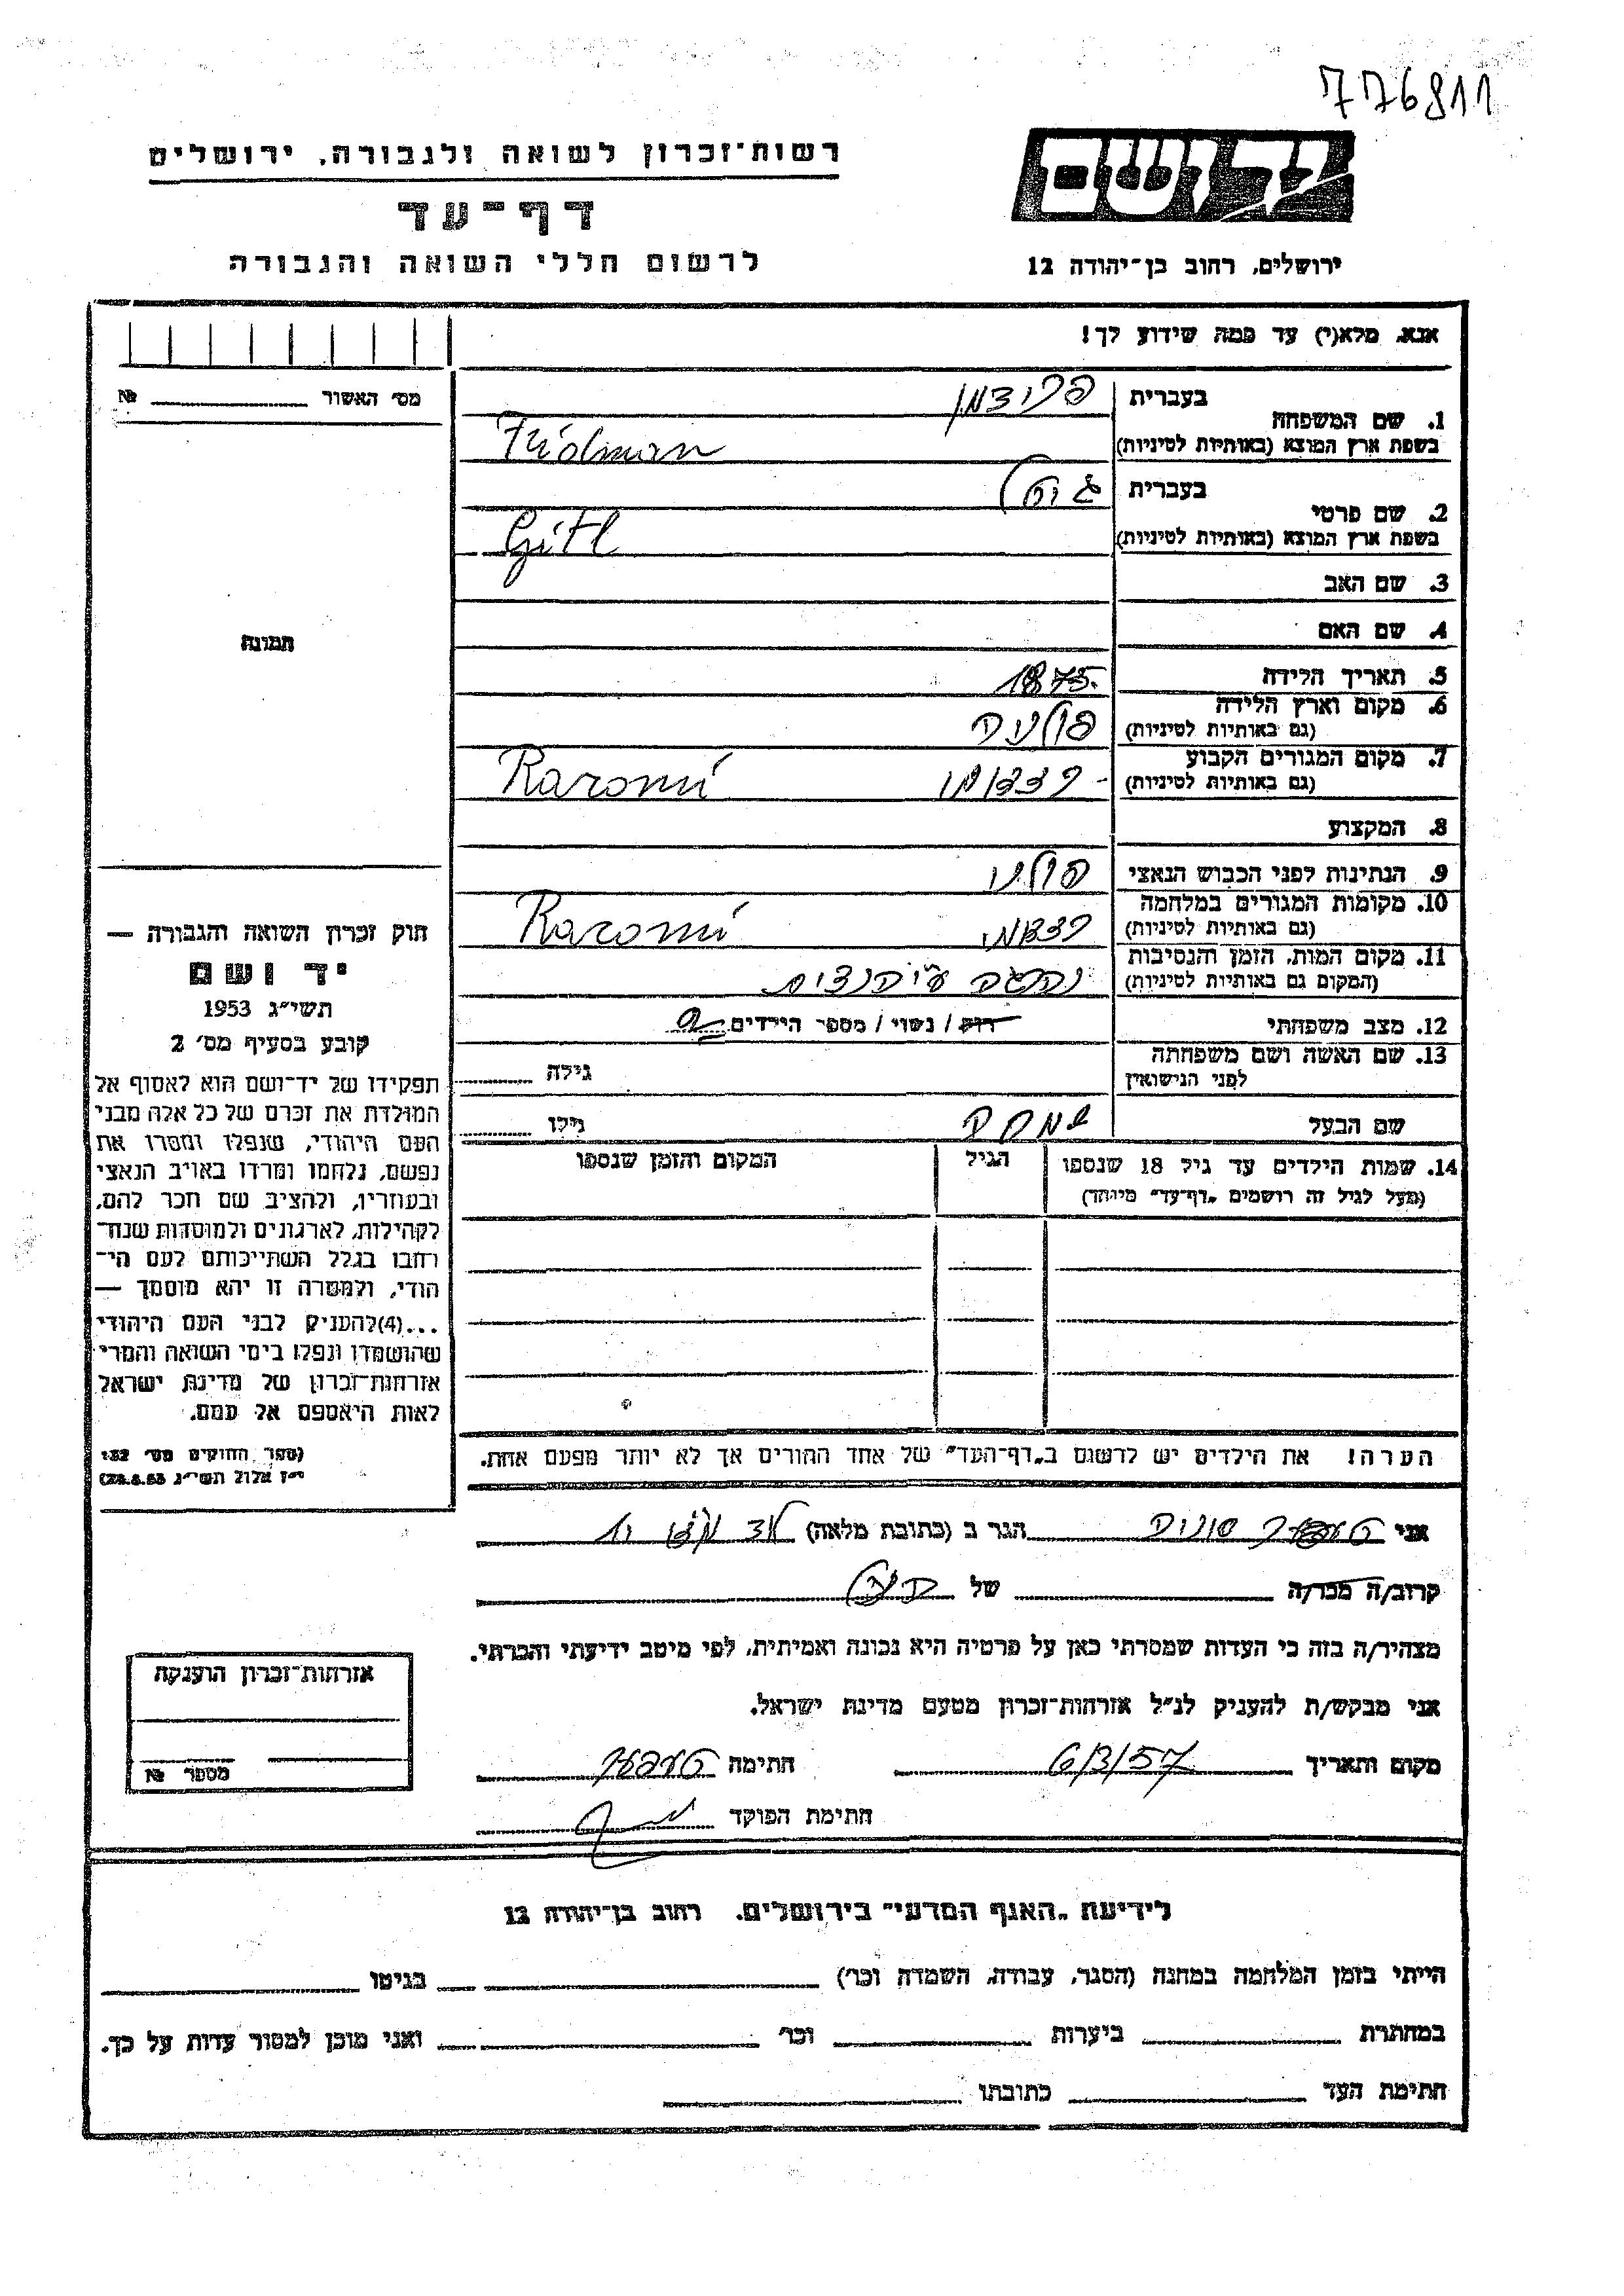 776811
רשות־זכרון לשואה ולגבורה, ירושלים
יד ושם
דף־עד
לרשום חללי השואה והגבורה
ירושלים, רחוב בן־יהודה 12
אנא, מלא(י) עד כמה שידוע לך!
מס׳ האשור №
1. שם המשפחה
בעברית פרידמן
בשפת ארץ המוצא (באותיות לטיניות) Fridman
2. שם פרטי
בעברית גיטל
בשפת ארץ המוצא (באותיות לטיניות) Gitl
3. שם האב
4. שם האם
תמונה
5. תאריך הלידה 1875
6. מקום וארץ הלידה
(גם באותיות לטיניות)
7. מקום המגורים הקבוע
(גם באותיות לטיניות)
8. המקצוע
9. הנתינות לפני הכבוש הנאצי
10. מקומות המגורים במלחמה
(גם באותיות לטיניות)
11. מקום המות, הזמן והנסיבות
(המקום גם באותיות לטיניות)
12. מצב משפחתי רוק / נשוי / מספר הילדים
13. שם האשה ושם משפחתה
לפני הנישואין
גילה
שם הבעל
גילו
14. שמות הילדים עד גיל 18 שנספו
(מעל לגיל זה רושמים „דף־עד״ מיוחד)
הגיל
המקום והזמן שנספו
הערה! את הילדים יש לרשום ב„דף־העד״ של אחד ההורים אך לא יותר מפעם אחת.
חוק זכרון השואה והגבורה —
יד ושם
תשי״ג 1953
קובע בסעיף מס׳ 2
תפקידו של יד־ושם הוא לאסוף אל
המולדת את זכרם של כל אלה מבני
העם היהודי, שנפלו ומסרו את
נפשם, נלחמו ומרדו באויב הנאצי
ובעוזריו, ולהציב שם וזכר להם,
לקהילות, לארגונים ולמוסדות שנח־
רחבו בגלל השתייכותם לעם הי־
הודי, ולמטרה זו יהא מוסמך —
...(4)להעניק לבני העם היהודי
שהושמדו ונפלו בימי השואה והמרי
אזרחות־זכרון של מדינת ישראל
לאות היאספם אל עמם.
(ספר החוקים מס׳ 132
י״ז אלול תשי״ג 28.8.53)
אני הגר ב (כתובת מלאה)
קרוב/ה מכר/ה של
מצהיר/ה בזה כי העדות שמסרתי כאן על פרטיה היא נכונה ואמיתית, לפי מיטב ידיעתי והכרתי.
אני מבקש/ת להעניק לנ״ל אזרחות־זכרון מטעם מדינת ישראל.
מקום ותאריך 6/3/57 חתימה
חתימת הפוקד
אזרחות־זכרון הוענקה
מספר №
לידיעת „האגף המדעי״ בירושלים, רחוב בן־יהודה 12
הייתי בזמן המלחמה במחנה (הסגר, עבודה, השמדה וכו׳) בגיטו
במחתרת ביערות וכו׳ ואני מוכן למסור עדות על כך.
חתימת העד כתובתו